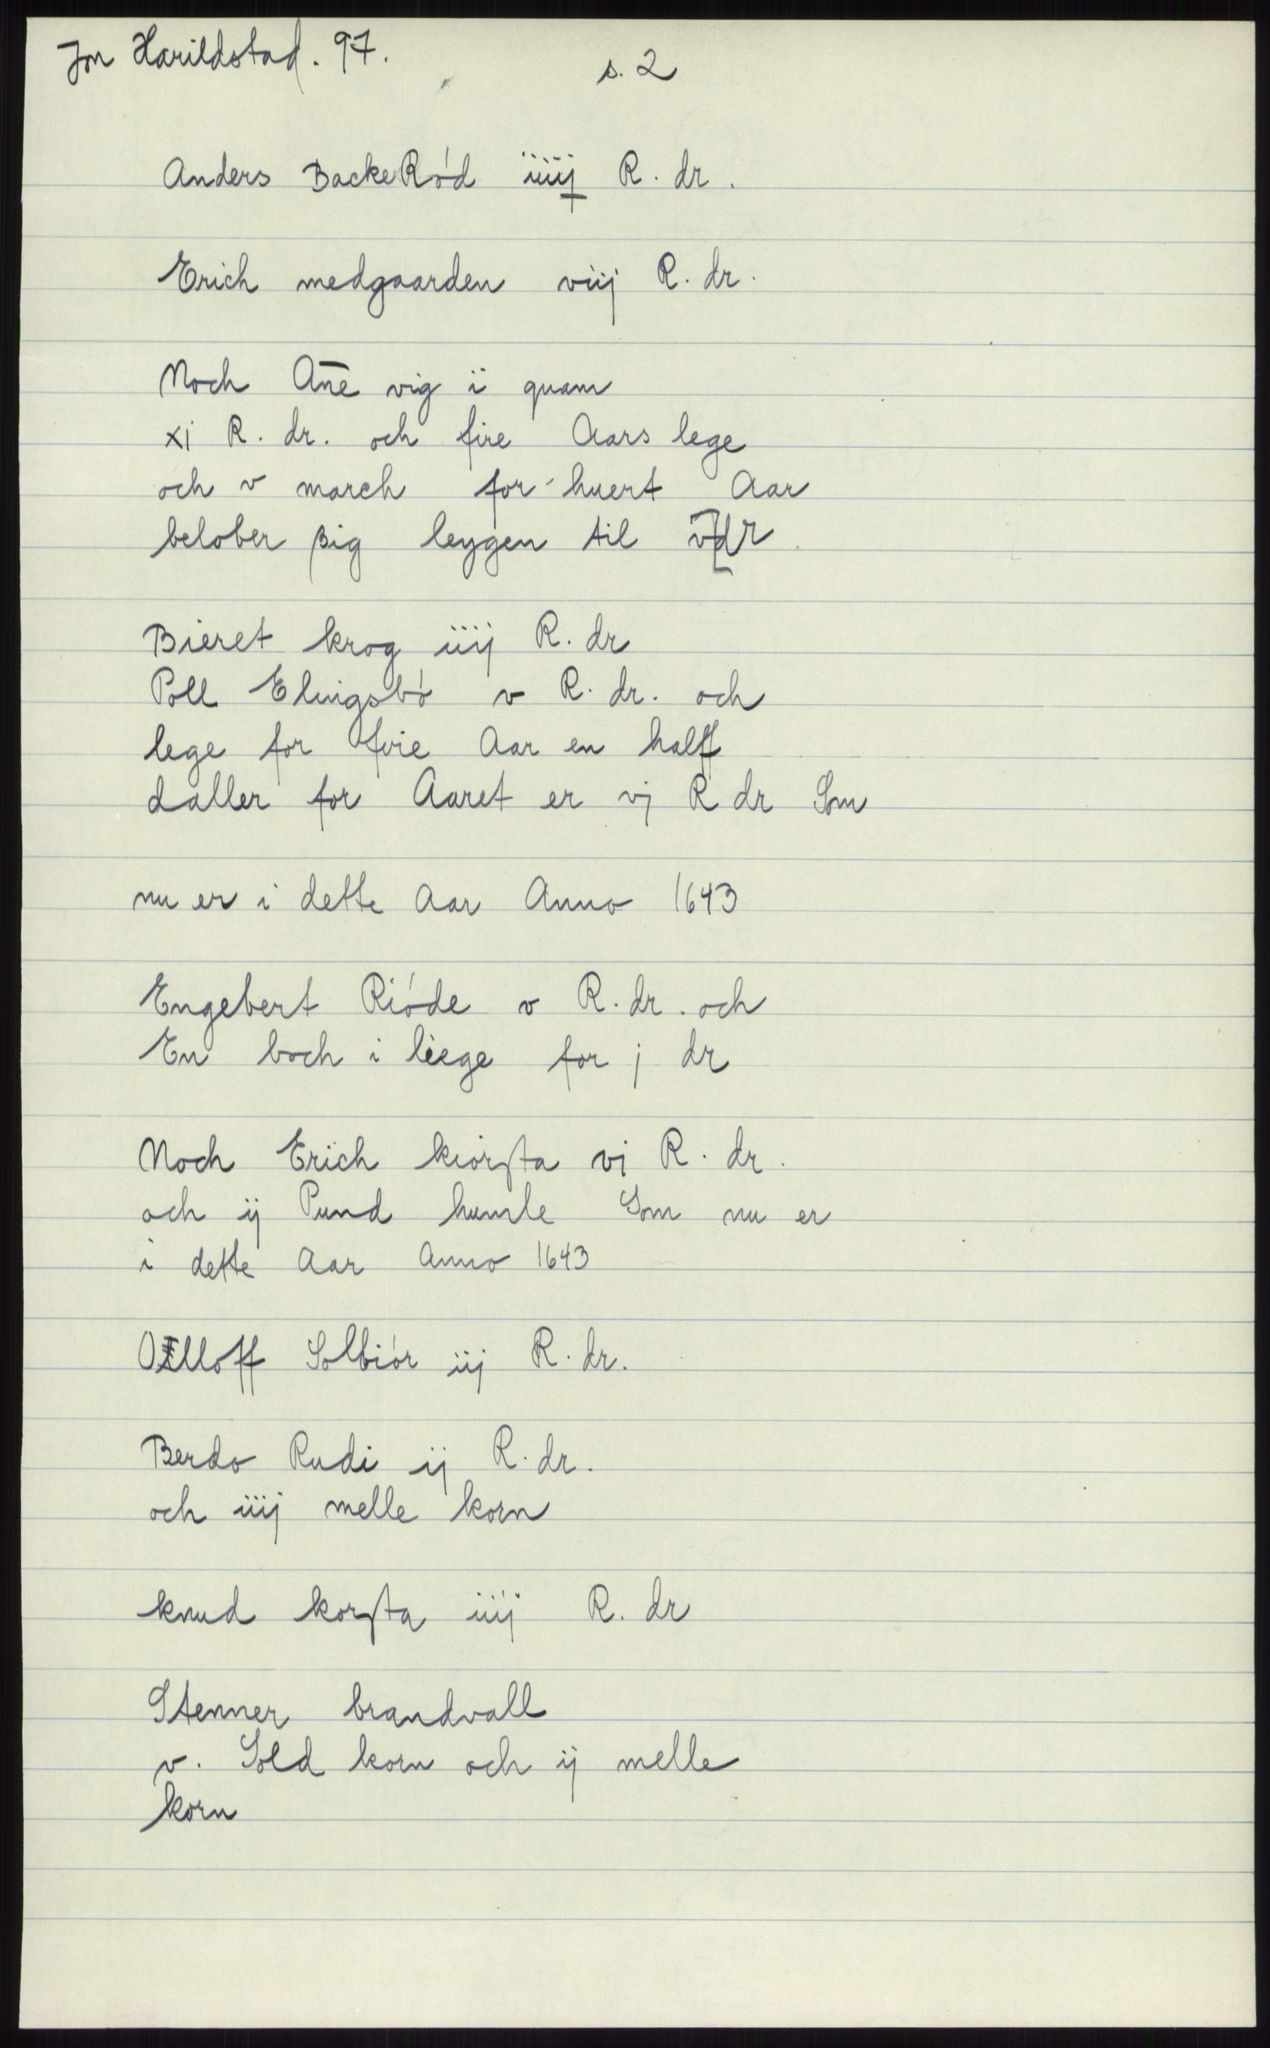 Jon Harildstad. 97.
s. 2
Anders BackeRód iiiij R. dr.
Erich medgaarden viij R. dr.
Noch Ane vig ii quam
xi R. dr. och fire Aars lege
och v march for huert Aar
belober sig leygen til dr
Bieret krog iiij R. dr
Poll Elingsbó v R. dr. och
lege for fvie Aar en halff
daller for Aaret er vj R dr Som
nu er i dette Aar Anno 1643
Engebert Rióde v R. dr. och
En boch i liege for j dr
Noch Erich kiorsta vj R. dr.
och ij Pund humle Som nu er
i dette Aar Anno 1643
Olloff Solbiór iij R. dr.
Berdo Rudi ij R. dr.
och iiij melle korn
knud korsta iiij R. dr
Stenner brandvall
v. Sold korn och ij melle
korn